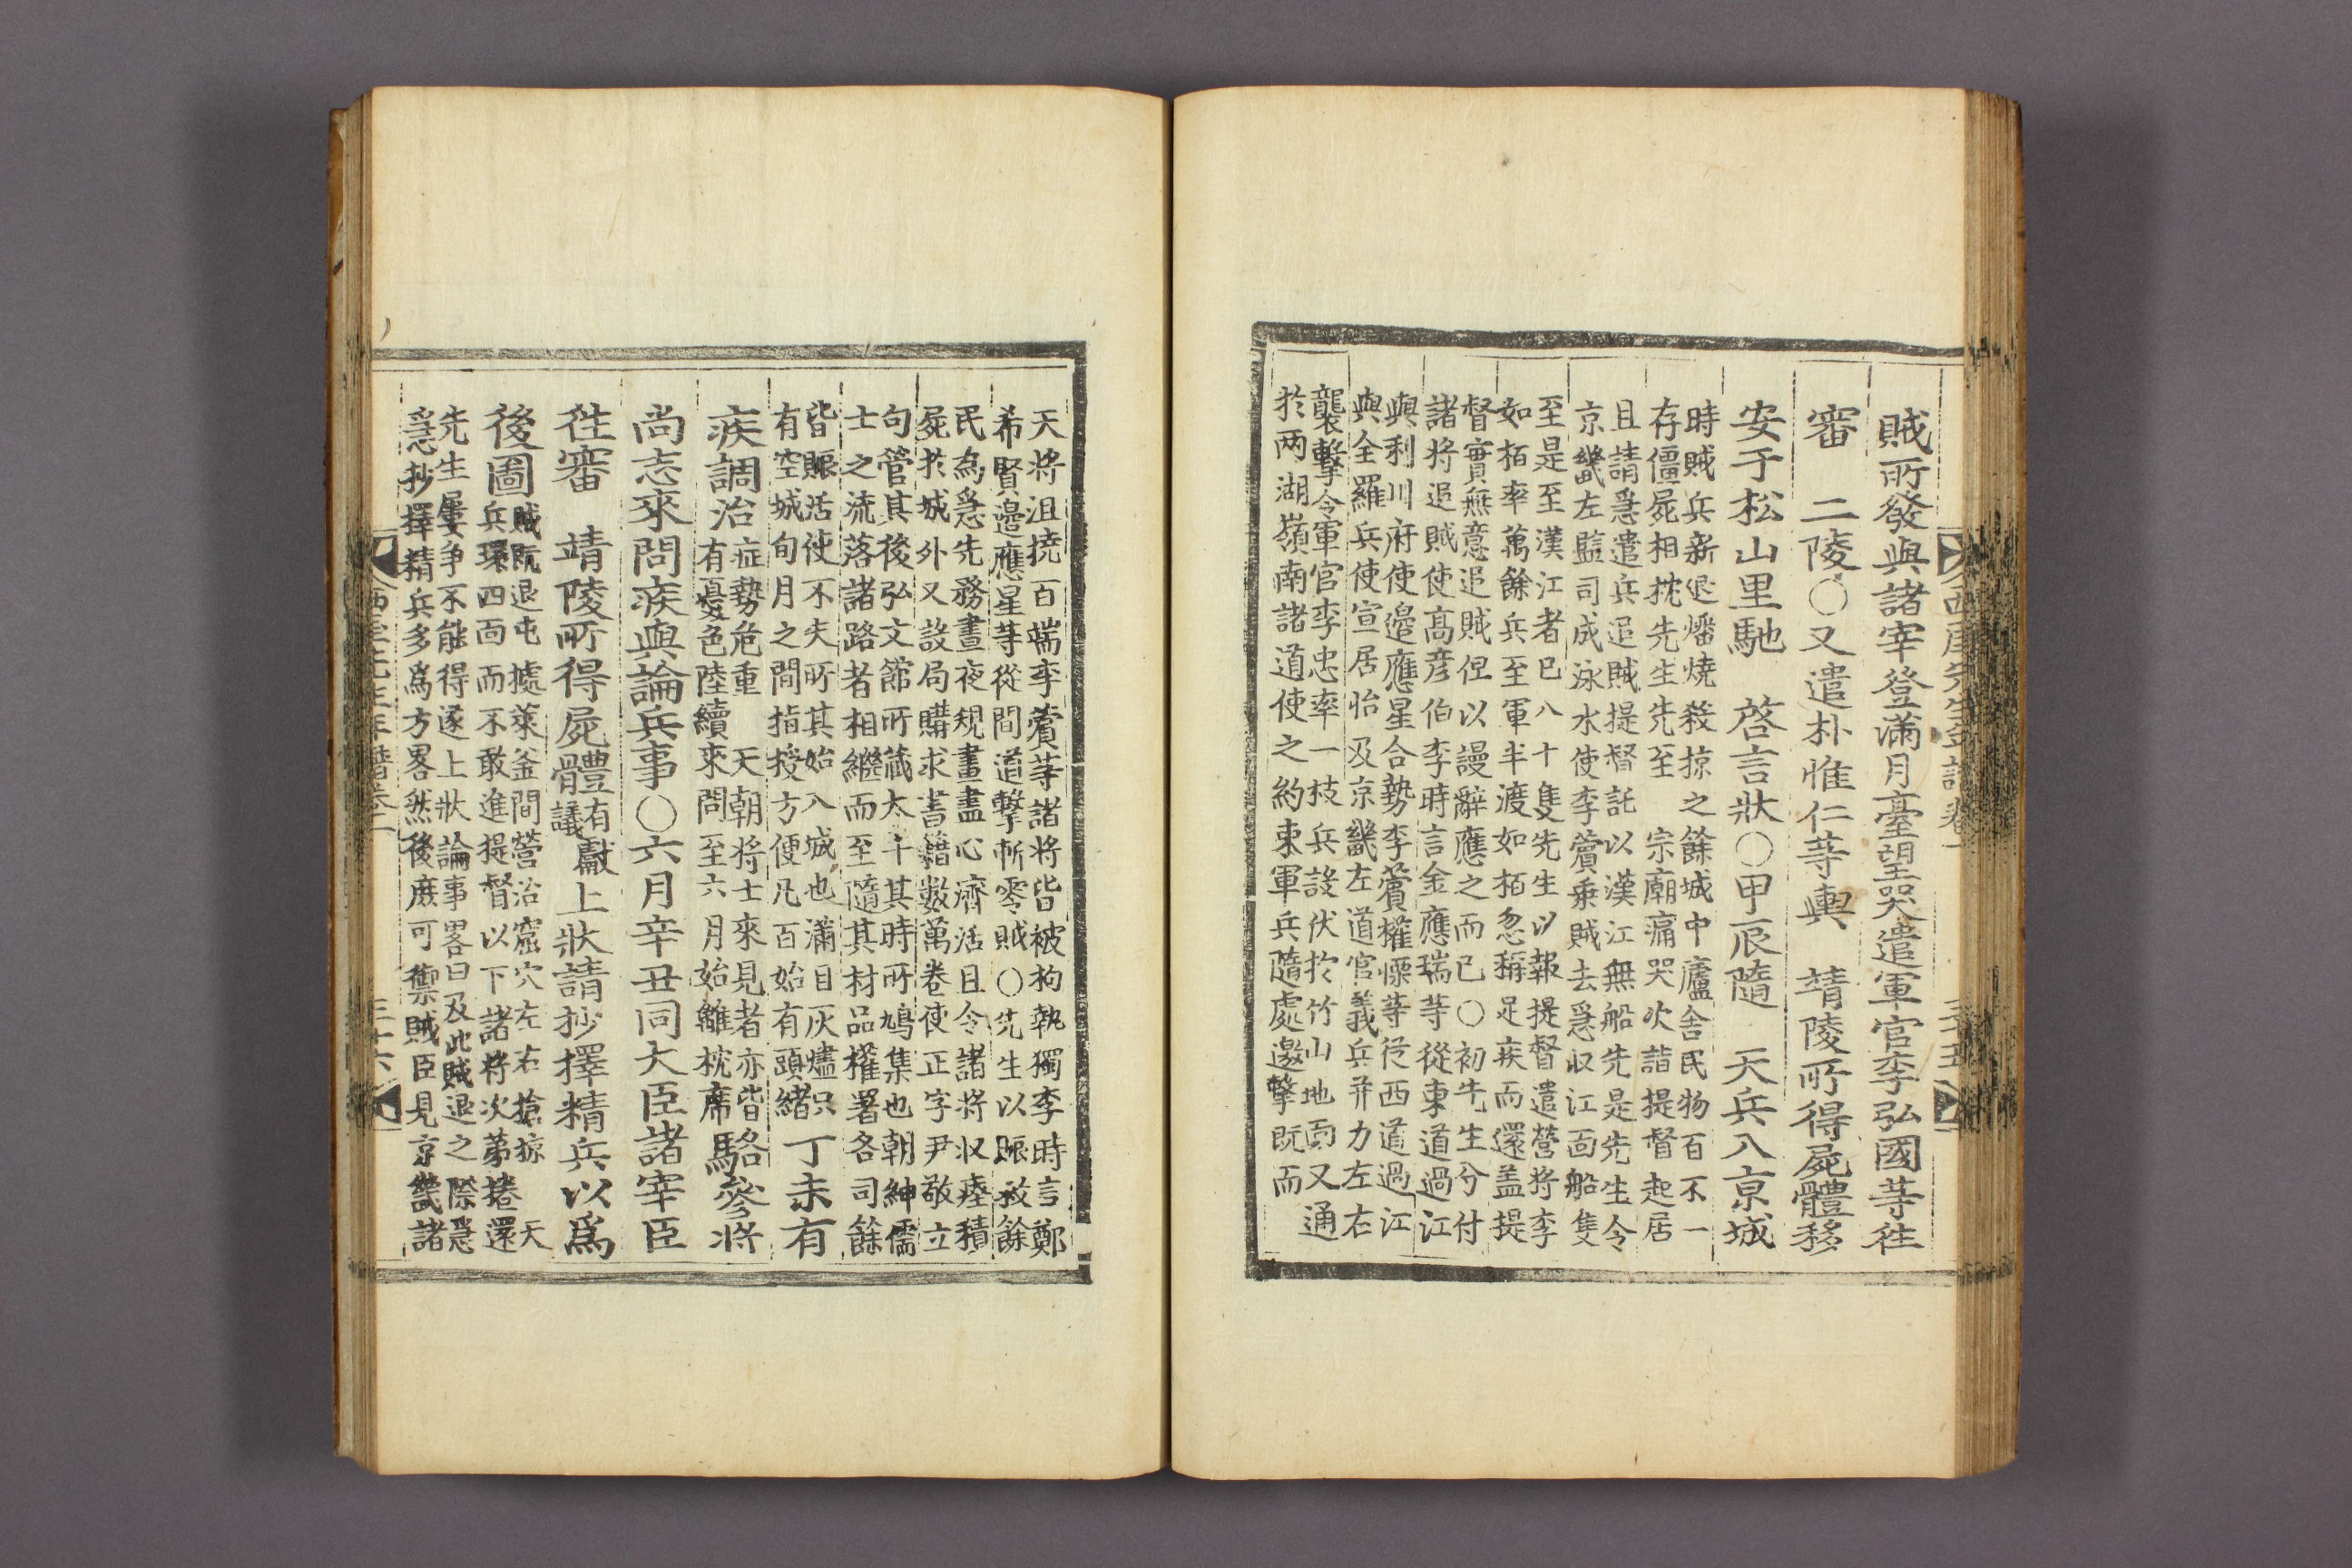 賊所發與諸宰登滿月臺望哭遣軍官李弘國等徃
審　二陵○又遣朴惟仁等輿　靖陵所得屍體移
安于松山里馳　啓言狀○甲辰隨　天兵入京城
時賊兵新退燔燒殺掠之餘城中廬舍民物百不一
存僵屍相枕先生先至　宗廟痛哭次詣提督起居
且請急遣兵追賊提督託以漢江無船先是先生令
京畿左監司成泳水使李薲乘賊去急収江面船隻
至是至漢江者已八十隻先生以報提督遣營將李
如栢率萬餘兵至軍半渡如栢忽稱足疾而還盖提
督實無意追賊但以謾辭應之而已○初先生分付
諸將追賊使高彦伯李時言金應瑞等從東道過江
與利川府使邉應星合勢李薲權慄等從西道過江
與全羅兵使宣居怡及京畿左道官義兵并力左右
襲擊令軍官李忠率一枝兵設伏扵竹山地面又通
扵两湖嶺南諸道使之約束軍兵隨處邀擊既而
天將沮撓百端李薲等諸將皆被拘執獨李時言鄭
希賢邉應星等從間道擊斬零賊○先生以賑救餘
民為急先務晝夜規畫盡心濟活且令諸將収瘞積
屍扵城外又設局購求書籍數萬卷使正字尹敬立
句管其後弘文館所藏太半其時所鳩集也朝紳儒
士之流落諸路者相繼而至隨其材品權署各司餘
皆賑活使不失所其始入城也滿目灰燼只
有空城旬月之間指授方便凡百始有頭緒丁未有
疾調治症勢危重　天朝將士來見者亦皆
有憂色陸續來問至六月始離枕席駱參將
尚志來問疾與論兵事○六月辛丑同大臣諸宰臣
徃審　靖陵所得屍體有獻
議上狀請抄擇精兵以爲
後圖賊既退屯據萊釜間營治窟穴左右搶掠　天
兵環四面而不敢進提督以下諸將次第捲還
先生屢爭不能得遂上狀論事畧曰及此賊退之際急
急抄擇精兵多爲方畧然後庶可禦賊臣見京畿諸